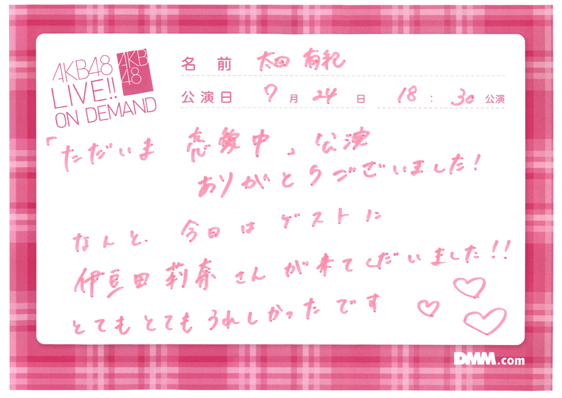 AKB48
LIVE!!
ON DEMAND
AKB
48
名前 太田 有紀
公演日 7月24日 18:30公演
「ただいま 恋愛中」公演
ありがとうございました!
なんと、今日は ゲストに
伊豆田 莉奈 さん が来てくだいました!!
とてもとてもうれしかったです
DMM.com